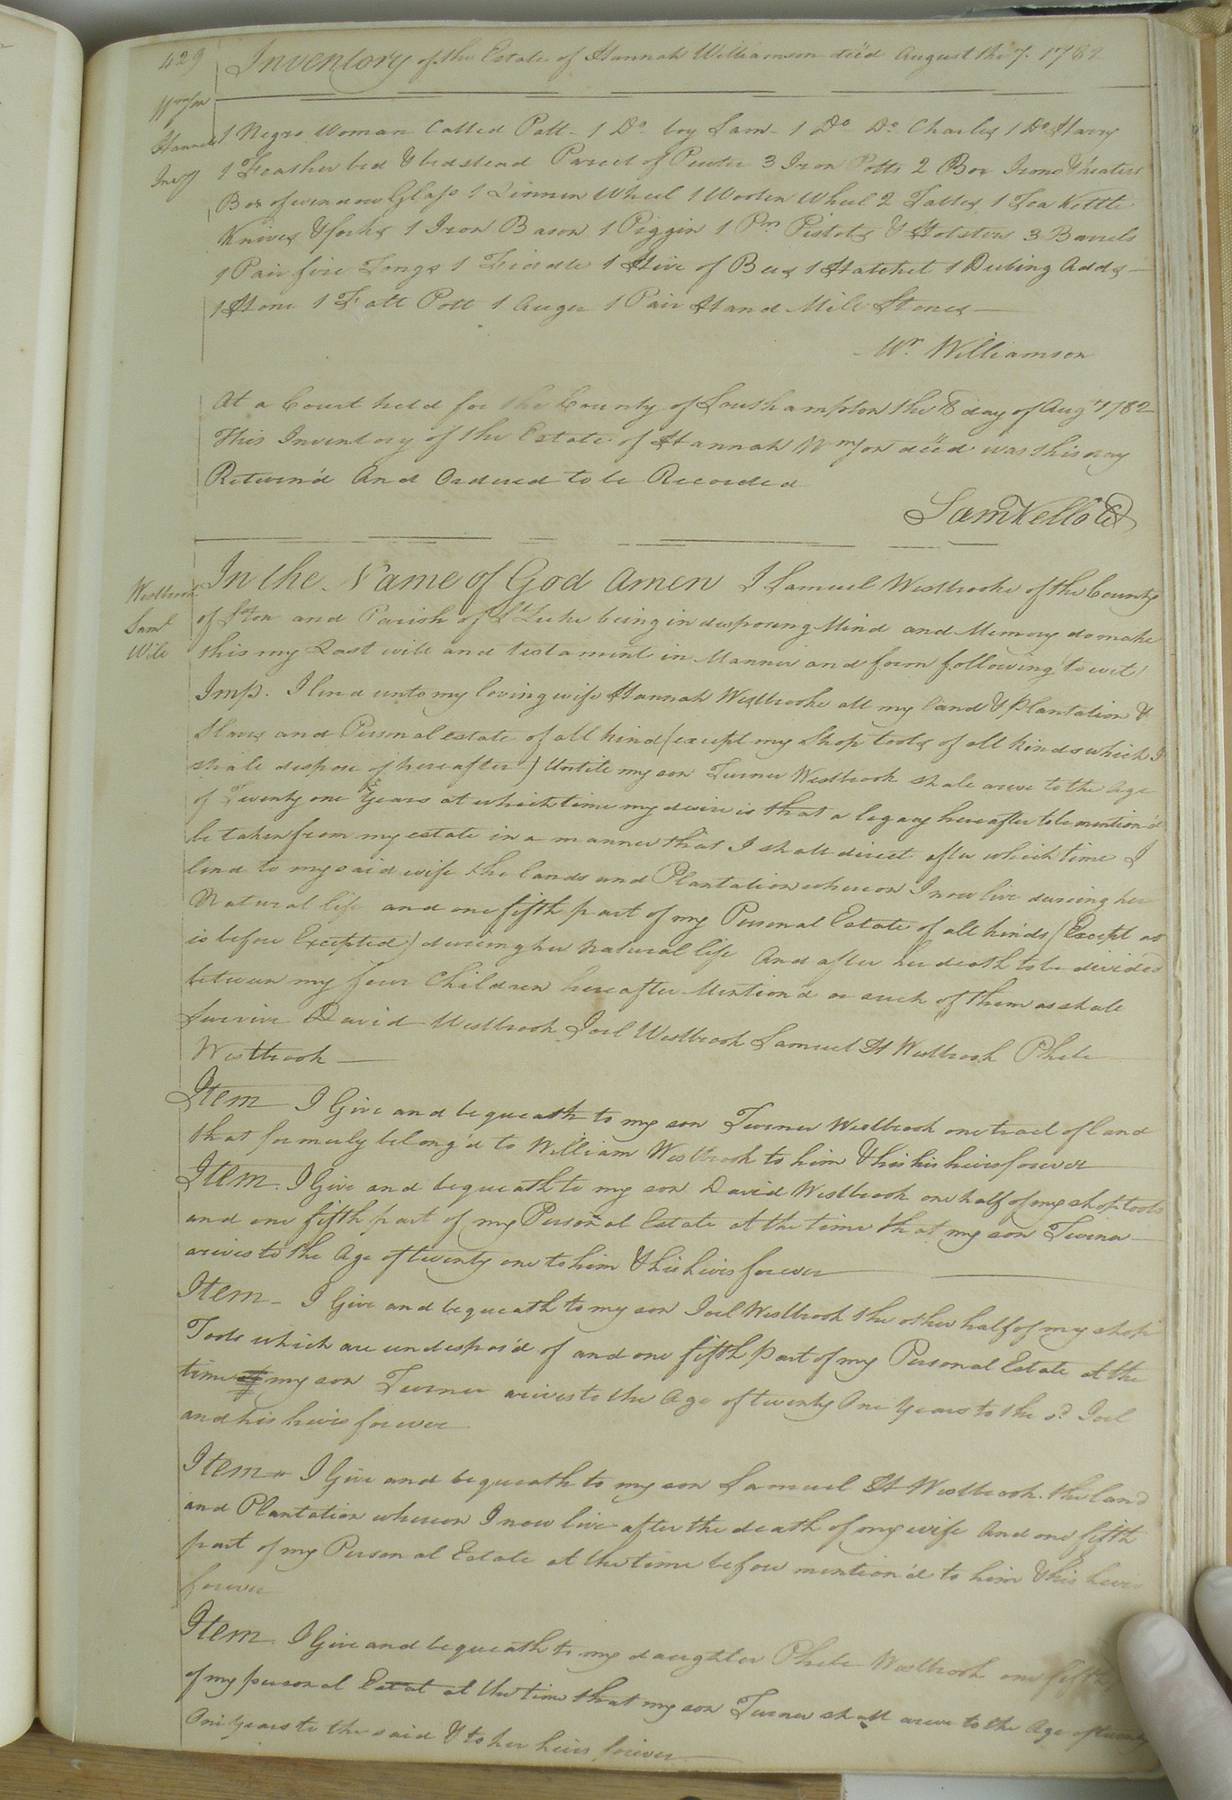 429
Inventory of the Estate of Hannah Williamson dec'd August the 7. 1782
Wmson
Hannah
Invy
1 Negro Woman Called Patt - 1 Do boy Sam - 1 Do Do Charles 1 Do Harry
1 Feather bed & bedstead Parcel of Pewter 3 Iron Potts 2 Box Irons & heaters
Box of window Glass 1 Linnen Wheel 1 Woolen Wheel 2 Tables 1 Tea Kettle
Knives & forks 1 Iron Bason 1 Piggin 1 Pr Pistols & Holsters 3 Barrels
1 Pair fire Tongs 1 Fiddle 1 Hive of Bees 1 Hatchet 1 Dubing Adds -
1 Hone 1 Fatt Pott 1 Auger 1 Pair Hand Mill Stones -
Wm. Williamson
At a Court held for the County of Southampton the 8 day of Augt 1782
This Inventory of the Estate of Hannah Wmson dec'd was this day
Return'd And Ordered to be Recorded
Saml Kello Ck
Westbrook
Saml
Will
In the Name of God Amen I Samuel Westbrooke of the County
of Southton and Parish of St Luke being in disposing Mind and Memory do make
this my Last will and testament in Manner and form following to wit,
Imp. I lend unto my loving wife Hannah Westbrooke all my land & Plantation &
Slaves and Personal estate of all kind (except my Shop tools of all kinds which I
shall dispose of hereafter) Untill my son Turner Westbrook shall arive to the Age
of Twenty one Years at which time my desire is that a legacy hereafter to be mention'd
be taken from my estate in a manner that I shall direct after which time I
lend to my said wife the lands and Plantation whereon I now live dureing her
Natural life and one fifth part of my Personal Estate of all kinds (Except as
is before Excepted) dureing her natural life And after her death to be divided
between my four Children hereafter Mention'd or such of them as shall
Survive David Westbrook Joel Westbrook Samuel H Westbrook Phebe
Westbrook -
Item I Give and bequeath to my son Turner Westbrook one tract of land
that formerly belong'd to William Westbrook to him & his his heirs forever
Item. I Give and bequeath to my son David Westbrook one half of my shop tools
and one fifth part of my Personal Estate at the time that my son Turner -
arives to the Age of twenty one to him & his heirs forever
Item - I Give and bequeath to my son Joel Westbrook the other half of my shop
Tools which are undespos'd of and one fifth part of my Personal Estate at the
time my son Turner arives to the Age of twenty One Years to the sd. Joel
and his heirs forever
Item - I Give and bequeath to my son Samuel H Westbrook the land
and Plantation whereon I now live after the death of my wife And one fifth
part of my Personal Estate at the time before mention'd to him & his heirs
forever
Item. I Give and bequeath to my daughter Phebe Westbrook one fifth
of my personal Estat at the time that my son Turner shall arive to the Age of twenty
One years to the said & to her heirs forever